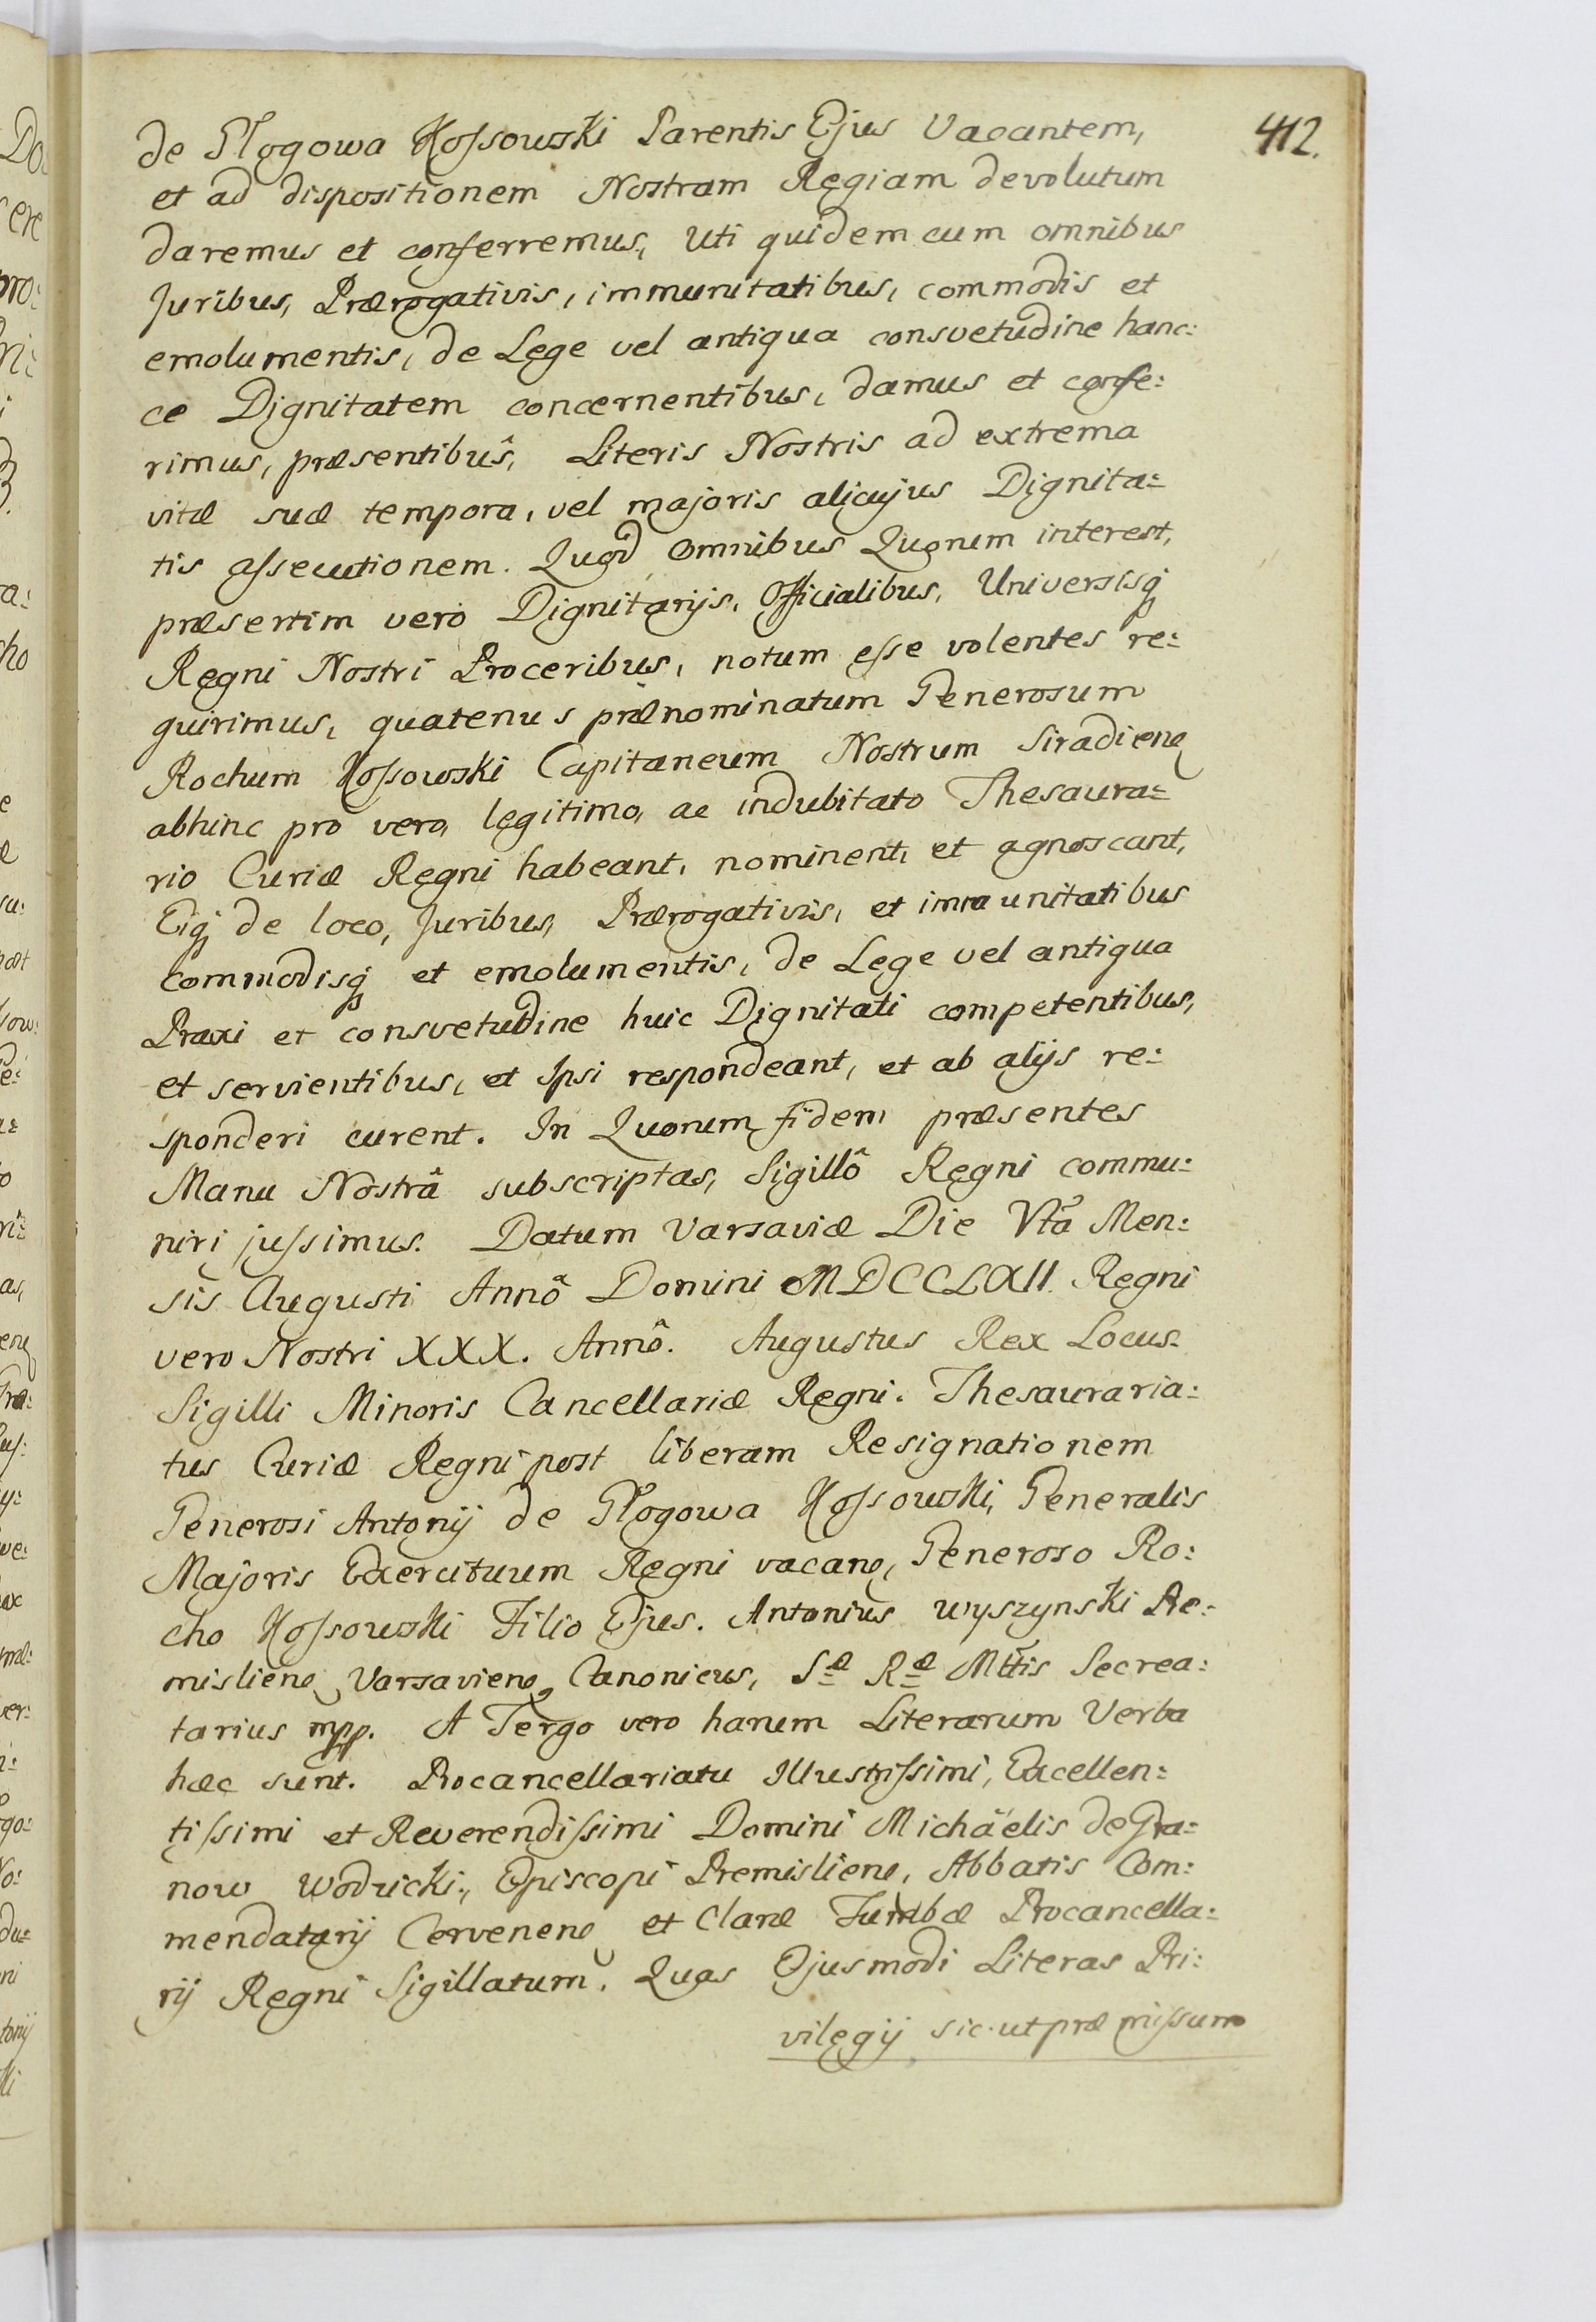 412.
de Głogowa Kossowski Parentis Ejus Vacantem,
et ad dispositionem Nostram Regiam devolutum
daremus et conferremus, Uti quidem cum omnibus
Juribus, Prærogativis, immunitatibus, commodis et
emolumentis, de Lege vel antiqua consvetudine hanc:
ce Dignitatem concernentibus, damus et confe:
rimus, præsentibus, Literis Nostris ad extrema
vitæ suæ tempora, vel majoris alicujus Dignita:
tis assecutionem. Quod Omnibus Quorum interest,
præsertim vero Dignitarijs, Officialibus, Universisq
Regni Nostri Proceribus, notum esse volentes re:
quirimus, quatenus prænominatum Generosum
Rochum Kossowski Capitaneum Nostrum Siradien
abhinc pro vero, legitimo, ac indubitato Thesaura:
rio Curiæ Regni habeant, nominent, et agnoscant,
Eiq de loco, Juribus, Prærogativis, et immunitatibus
commodisq et emolumentis, de Lege vel antiqua
Praxi et consvetudine huic Dignitati competentibus,
et servientibus, et Ipsi respondeant, et ab alijs re:
sponderi curent. In Quorum fidem præsentes
Manu Nostrâ subscriptas, Sigillô Regni commu:
niri jussimus. Datum Varsaviæ Die Vtâ Men:
sis Augusti Annô Domini MDCCLXII Regni
vero Nostri XXX. Annô. Augustus Rex Locus
Sigilli Minoris Cancellariæ Regni. Thesauraria:
tus Curiæ Regni post liberam Resignationem
Generosi Antonij de Głogowa Kossowski, Generalis
Majoris Exercituum Regni vacan, Generoso Ro:
cho Kossowski Filio Ejus. Antonius Wyszynski Pre:
mislien, Varsavien, Canonicus, Sæ Ræ Mttis Secrea:
tarius mpp. A Tergo vero harum Literarum Verba
hæc sunt. Procancellariatu Illustrissimi, Excellen:
tissimi et Reverendissimi Domini Michäelis de Gra:
now Wodzicki, Episcopi Premislien, Abbatis Com:
mendatarij Cervenen et Claræ Tumbæ Procancella:
rij Regni Sigillatum. Quas Ejusmodi Literas Pri:
vilegij sic ut præmissum